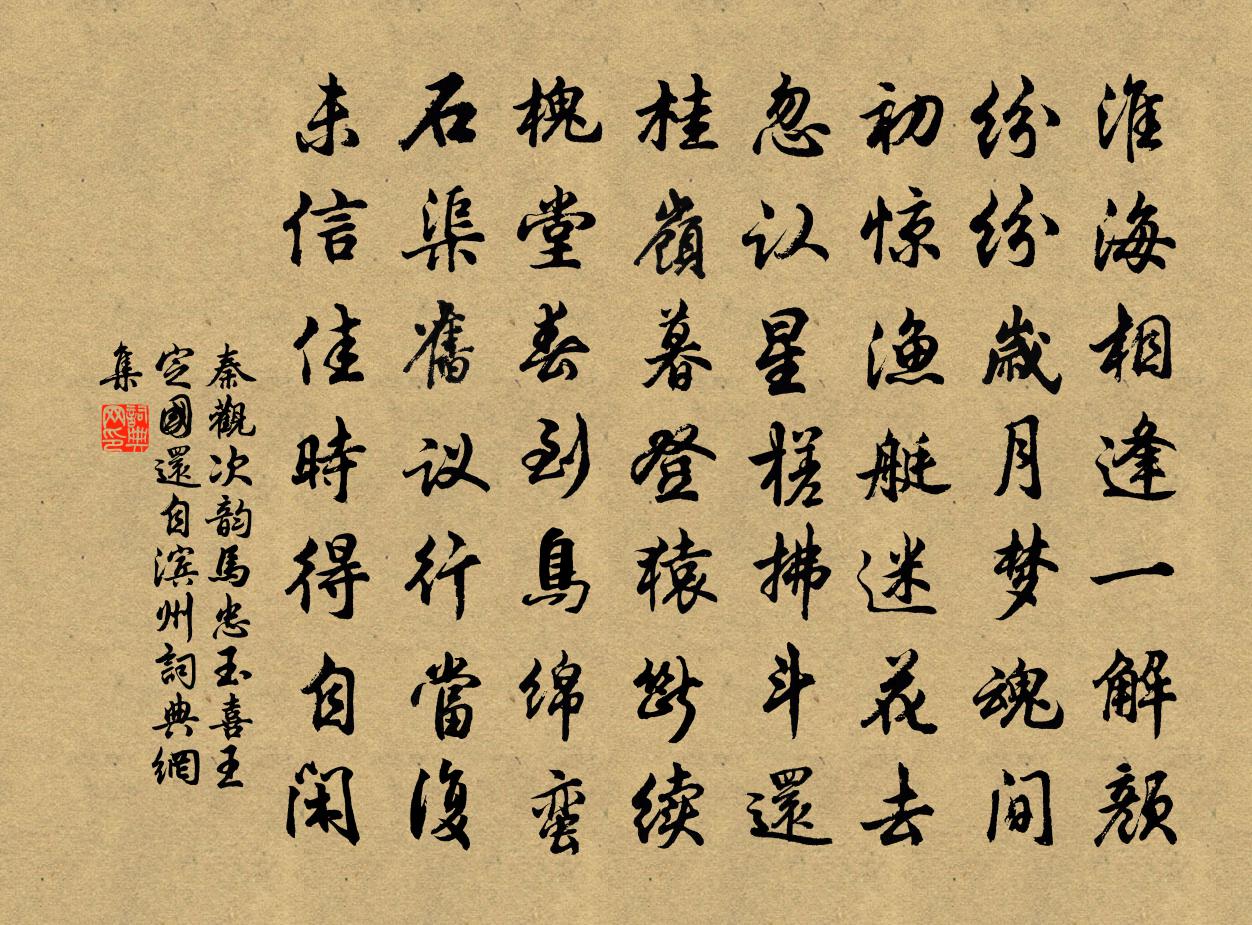 淮海相逢一解颜
纷纷歲月梦魂间
初惊渔艇迷花去
忽认星槎拂斗還
桂嶺暮登猿斷续
槐堂春到鳥绵蛮
石渠舊议行當復
未信佳時得自闲
秦觀次韵馬忠玉喜王
定國還自滨州詞典網
集
詞典
网印